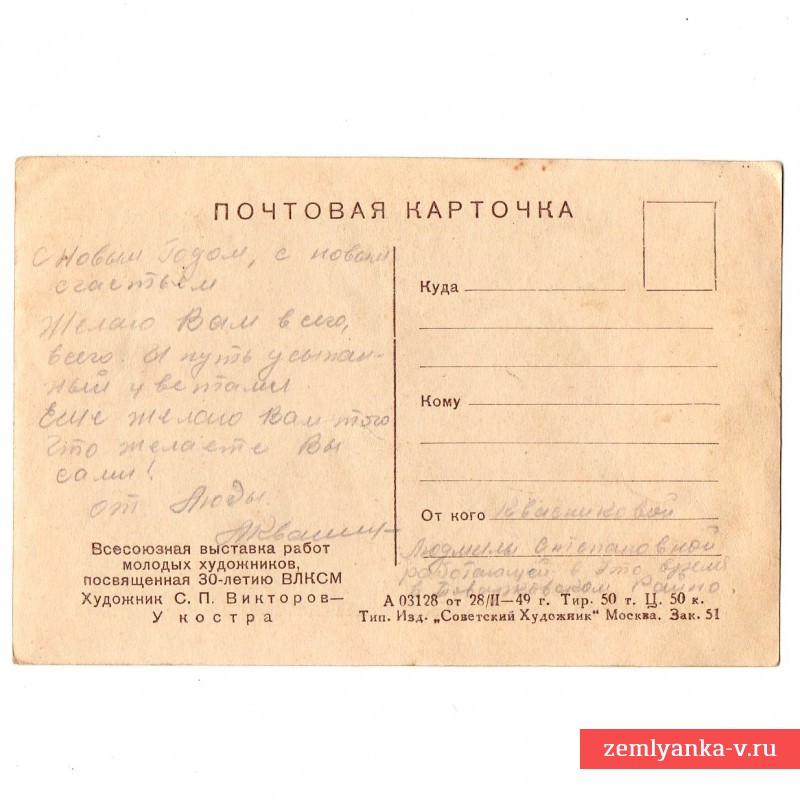 ПОЧТОВАЯ КАРТОЧКА
С Новым Годом, с новым
счастьем
Желаю Вам всего,
всего. И путь усыпан-
ный цветами.
Еще желаю Вам того
Что желаете Вы
сами!
от Люды.
Всесоюзная выставка работ
молодых художников,
посвященная 30-летию ВЛКСМ
Художник С. П. Викторов—
У костра
Куда
Кому
От кого Квасниковой
Людмилы Степановной
работающей в это время
Районо.
А 03128 от 28/II—49 г. Тир. 50 т. Ц. 50 к.
Тип. Изд. „Советский Художник" Москва. Зак. 51
zemlyanka-v.ru